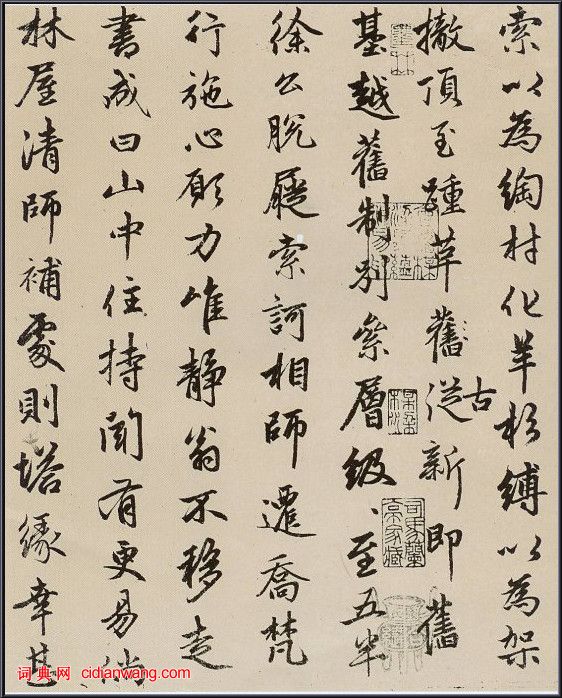 索以為綯材化羊杉縛以為架
撤頂至踵革舊從古新即舊
基越舊制別叅層級、至五半
徐公脫屣索訶相師遷喬梵
行施心願力唯靜翁不移走
書成曰山中住持聞有更易倘
林屋清師補處則塔緣幸甚
司馬蘭亭家藏
词典网 cidianwang.com